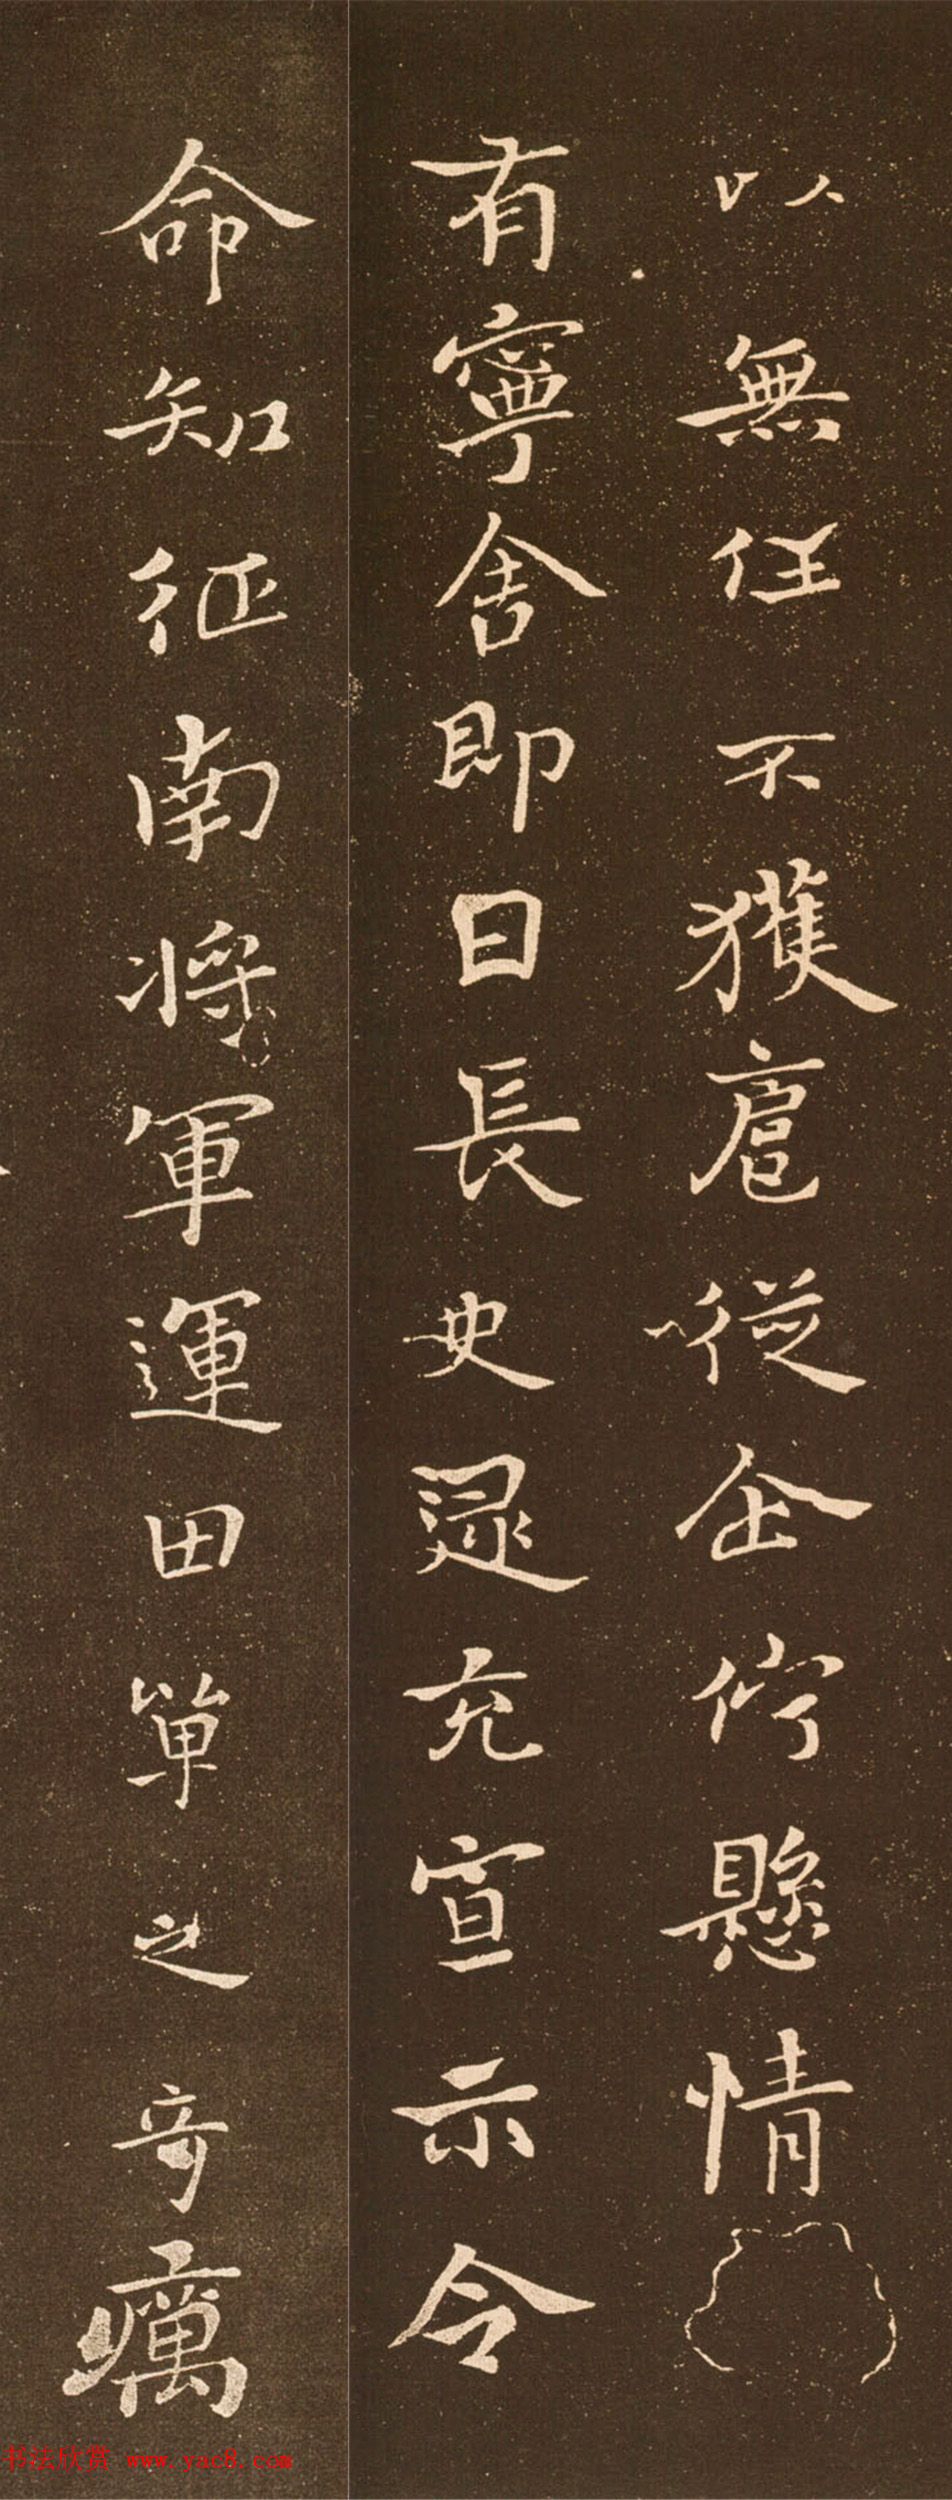 以無任不獲扈從企佇懸情
有寧舍即日長史逯充宣示令
命知征南將軍運田單之奇厲
书法欣赏 www.yac8.com